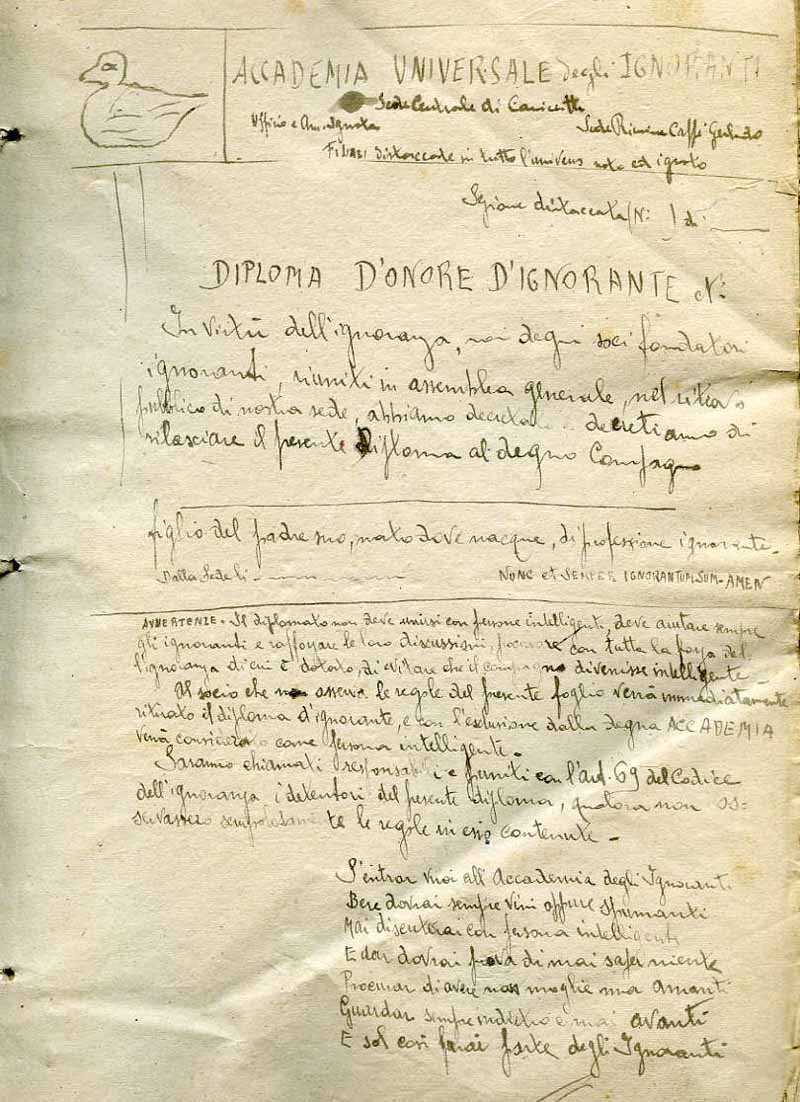 ACCADEMIA UNIVERSALE degli IGNORANTI
Sede Centrale di Canicattì
Ufficio e Am. Ignota Sede Rimini Caffè
FILIALI distaccate in tutto l'universo noto ed ignoto
Sezione distaccata (N: ) di
DIPLOMA D'ONORE D'IGNORANTE N:
In virtù dell'ignoranza, noi degni soci fondatori
ignoranti, riuniti in assemblea generale, nel ritrovo
pubblico di nostra sede, abbiamo decretato.. decretiamo di
rilasciare il presente Diploma al degno Compagno
figlio del padre suo, nato dove nacque, di professione ignorante.
Dalla Sede li NUNC et SEMPER IGNORANTUM SUM - AMEN
AVVERTENZE - Il diplomato non deve unirsi con persone intelligenti, deve aiutare sempre
gli ignoranti e rafforzare le loro discussioni, con tutta la forza del
l'ignoranza di cui è dotato, di evitare che il compagno divenisse intelligente -
Al socio che non osserva le regole del presente foglio verrà immediatamente
ritirato il diploma d'ignorante, e con l'esclusione dalla degna ACCADEMIA
verrà considerato come persona intelligente -
Saranno chiamati responsabili e puniti con l'art. 69 del Codice
dell'ignoranza i detentori del presente diploma, qualora non os=
servassero le regole in esso contenute -
S'entrar vuoi all'Accademia degli Ignoranti
Bere dovrai sempre vini oppure spumanti
Mai discuterai con persona intelligente
E dar dovrai prova di mai saper niente
Procurar di avere non moglie ma amanti
Guardar sempre indietro e mai avanti
E sol così farai parte degli Ignoranti